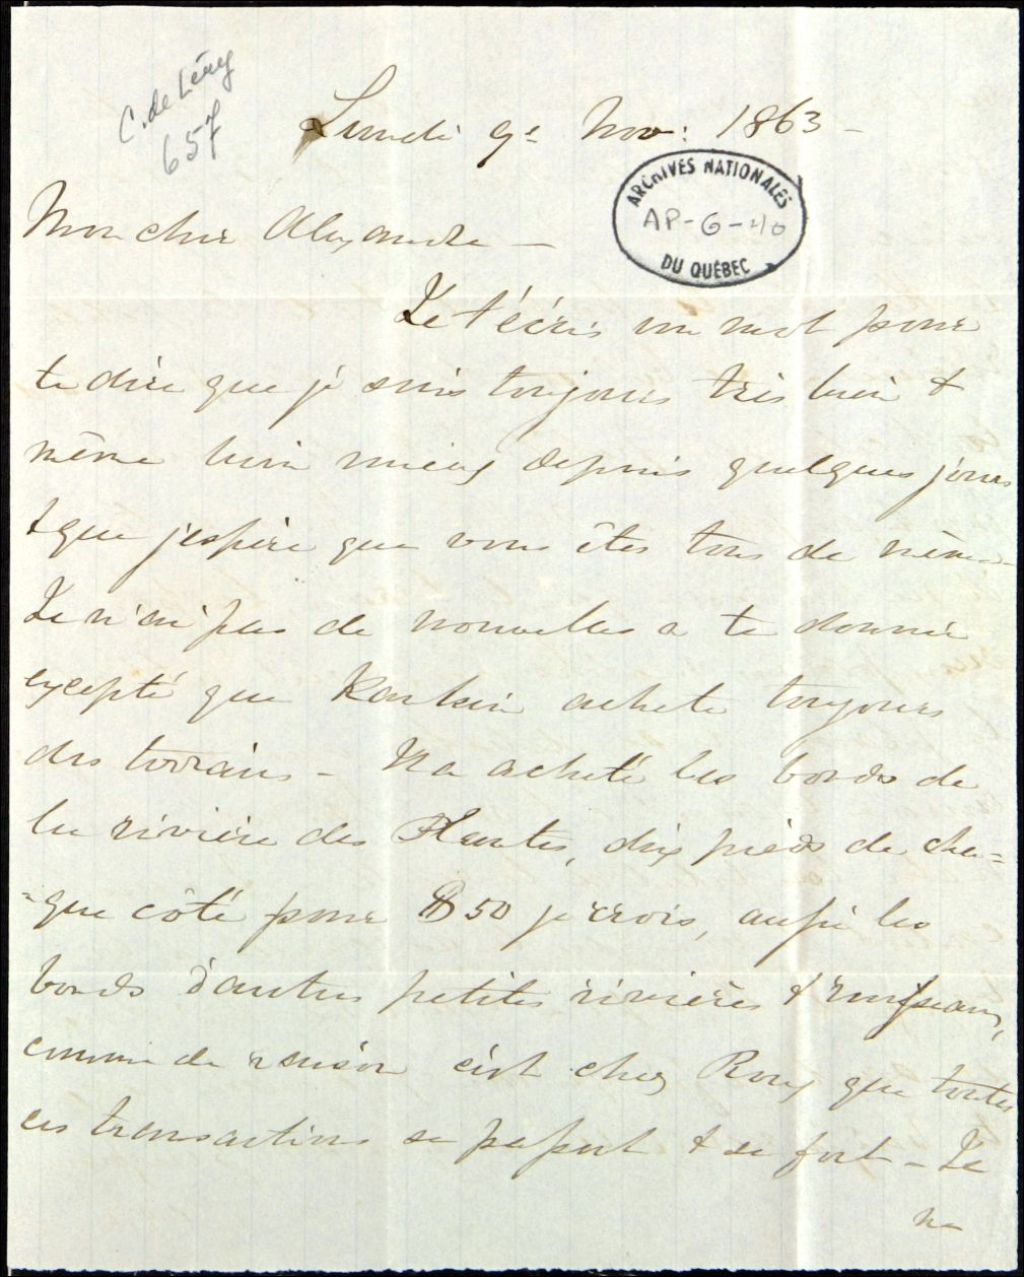 C. de Léry
657
Lundi 9e Nov: 1863 -
ARCHIVES NATIONALES
AP-G-40
DU QUÉBEC
Mon cher Alexandre -
Je t'écris un mot pour
te dire que je suis toujours très bien &
même bien mieux depuis quelques jours
& que j'espère que vous êtes tous de même
Je n'ai pas de nouvelles a te donner
excepté que Rankin achete toujours
des terrains - Il a acheté les bords de
la rivière des Plantes, dix pieds de cha=
=que côté pour $50 je crois, aussi les
bords d'autres petites rivières & ruisseaux,
comme de raison c'est chez Roux que toutes
ces transactions se passent & se font - Je
ne